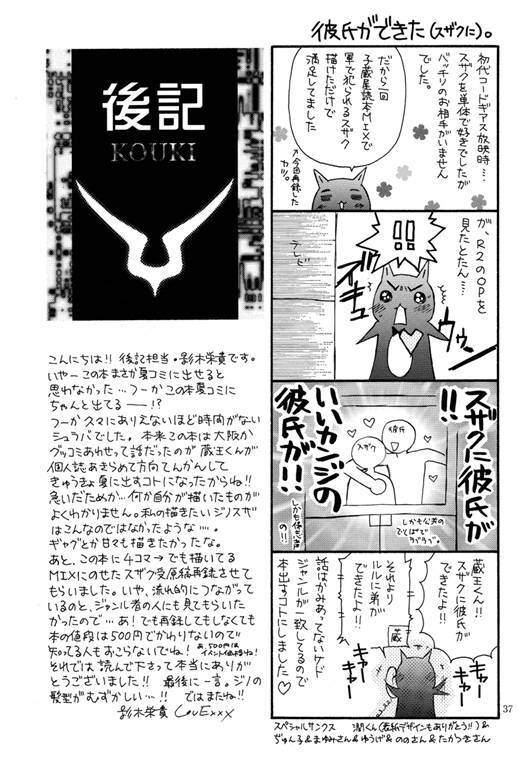 彼氏ができた(スザクに)。
初代コードギアス放映時…。
スザクを単体で好きでしたが
バッチリのお相手がいません
でした。
だから一回
子蔵屋読本MIXで
軍で犯られるスザク
描けただけで
満足してました
↑今回再録した
が、R2のOPを
見たとたん…
!!
テレビ
ズギュウゥーン
スザクに彼氏が!!
いいカンジの
彼氏が!!
彼氏
スザク
しかも公共の
しかも
の!!
蔵王くん!!
スザクに彼氏が
できたよ!!
それより
ルルに弟が
できたよ!!
蔵
キャー
キャー
キャー
キャー
話はかみあってないケド
ジャンルが一致してるので
本出すコトにしました♡
後記
KOUKI
こんにちは!! 後記担当・影木栄貴です。
いやーこの本まさか夏コミに出せると
思わなかった…つーかこの本夏コミに
ちゃんと出てる――!?
つーかスマにありえないほど時間がない
シュラバでした。本来この本は大阪か
グッコミあわせって話だったのが蔵王くんが
個人誌あきらめて方向てんかんして
きゅうきょ夏に出すコトになったからね!!
急いだためか…何か自分が描いたものが
よくわかりません。私の描きたいジノスザ
はこんなのではなかったような…。
ギャグとか甘々も描きたかったな。
あと、この本に4コマ→でも描いてる
MIXにのせたスザク受原稿再録させて
もらいました。いや、流れ的につながって
いるのと、ジャンル者の人にも見てもらいた
かったので…あ!でも再録してもしなくても
本の値段は500円でかわりないので
知ってる人もおこらないでね! あ、500円は
イベント価格ね!
それでは読んで下さって本当にありが
とうございました!! 最後に一言。ジノの
髪型がむずかしい…!! ではまたね!!
影木栄貴 LovExxx
スペシャルサンクス 潤くん(表紙デザインもありがとう!!)&
ぢゅん子&まゆみさん&ゆうげ&ののさん&たかつきさん
37